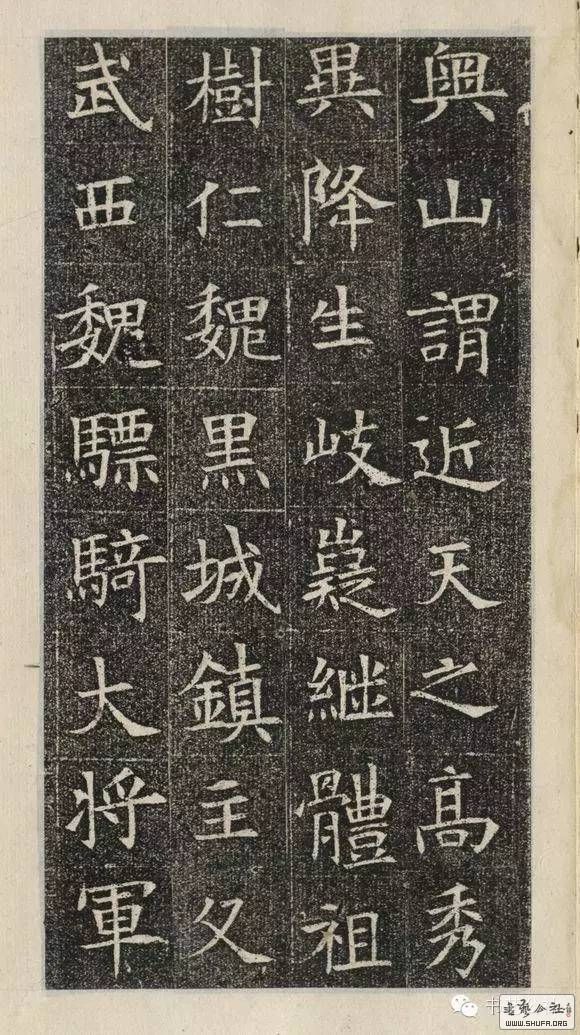 輿山謂近天之高秀
異降生岐嶷継體祖
樹仁魏黒城鎮主父
武西魏驃騎大将軍
书
WWW.SHUFA.ORG